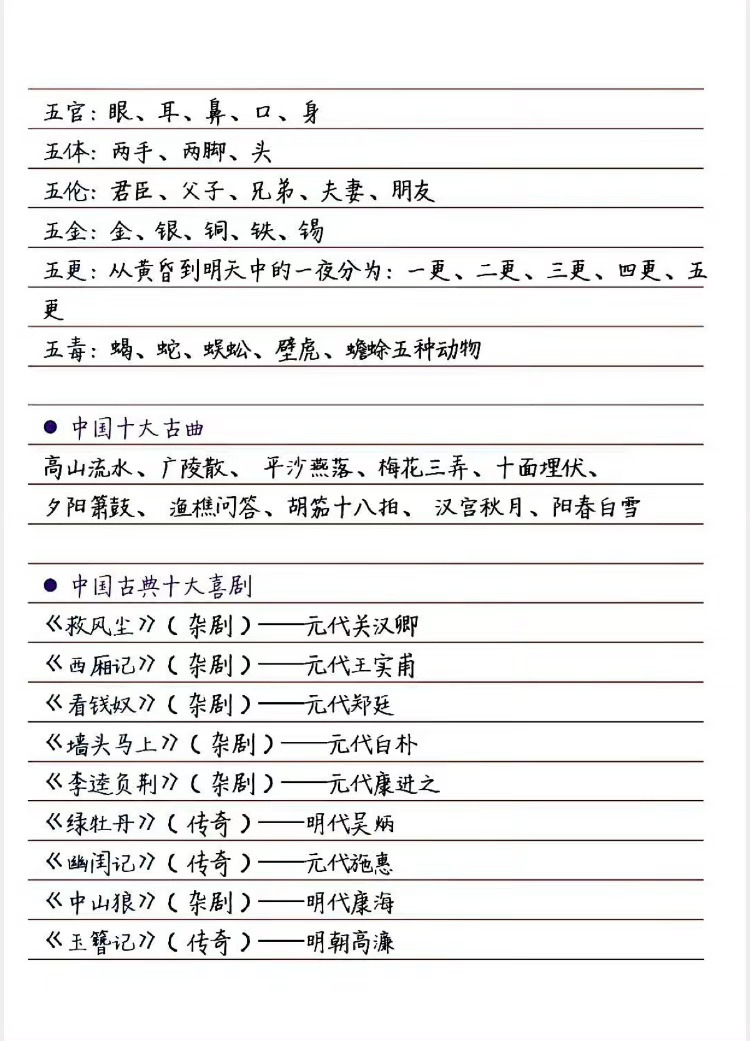 五官：眼、耳、鼻、口、身
五体：两手、两脚、头
五伦：君臣、父子、兄弟、夫妻、朋友
五金：金、银、铜、铁、锡
五更：从黄昏到明天中的一夜分为：一更、二更、三更、四更、五
更
五毒：蝎、蛇、蜈蚣、壁虎、蟾蜍五种动物
● 中国十大古曲
高山流水、广陵散、 平沙燕落、梅花三弄、十面埋伏、
夕阳箫鼓、 渔樵问答、胡笳十八拍、 汉宫秋月、阳春白雪
● 中国古典十大喜剧
《救风尘》（杂剧）——元代关汉卿
《西厢记》（杂剧）——元代王实甫
《看钱奴》（杂剧）——元代郑廷
《墙头马上》（杂剧）——元代白朴
《李逵负荆》（杂剧）——元代康进之
《绿牡丹》（传奇）——明代吴炳
《幽闺记》（传奇）——元代施惠
《中山狼》（杂剧）——明代康海
《玉簪记》（传奇）——明朝高濂